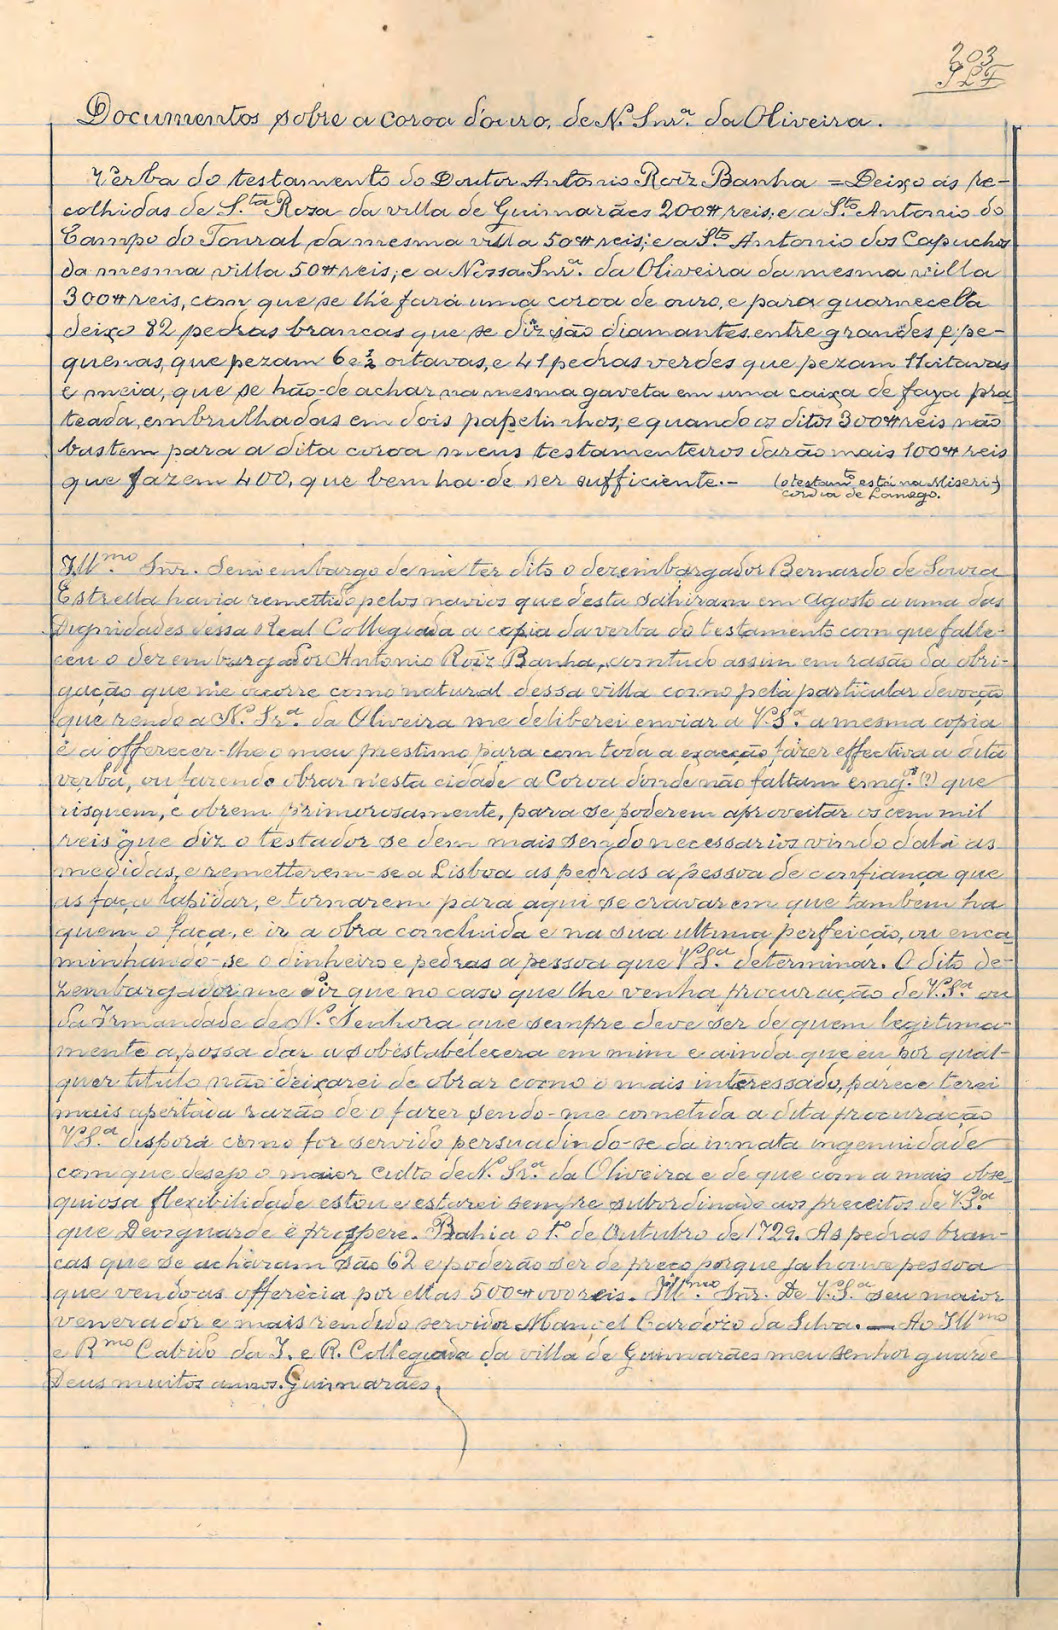 203
Documentos sobre a coroa d'ouro, de N. Snrª. da Oliveira.
Verba do testamento do Doutor Antonio Roiz Banha = Deixo ás re-
colhidas de S.ta Rosa da villa de Guimarães 200# reis; e a S.to Antonio do
Campo do Toural da mesma villa 50# reis; e a S.to Antonio dos Capuchos
da mesma villa 50# reis; e a Nossa Snrª. da Oliveira da mesma villa
300# reis, com que se lhe fará uma coroa de ouro, e para guarnecella
deixo 82 pedras brancas que se diz são diamantes entre grandes e pe-
quenas, que pezam 6 e ½ oitavas, e 41 pedras verdes que pezam 11 oitavas
e meia, que se hão-de achar na mesma gaveta em uma caixa de faya pra
teada, embrulhadas em dois papelinhos; e quando os ditos 300# réis não
bastem para a dita coroa meus testamenteiros darão mais 100# reis
que fazem 400, que bem ha-de ser sufficiente.- (o testamto está na Miseri-)
cordia de Lamego.
Ill.mo Snr. Sem embargo de me ter dito o dezembargador Bernardo de Souza
Estrella havia remettido pelos navios que desta sahiram em Agosto a uma das
Dignidades dessa Real Collegiada a copia da verba do testamento com que falle-
ceu o dezembargador Antonio Roiz Banha, comtudo assim em rasão da obri-
gação que me occorre como natural dessa villa como pela particular devoção
que rendo a N. Srª. da Oliveira me deliberei enviar a V.Sª. a mesma copia
e a offerecer-lhe o meu prestimo para com toda a exacção fazer effectiva a dita
verba, ou fazendo obrar n'esta cidade a Coroa donde não faltam emg.os (?) que
risquem, e obrem primorosamente, para se poderem aproveitar os cem mil
reis que diz o testador se dem mais sendo necessarios vindo dahi as
medidas, e remetterem-se a Lisboa as pedras a pessoa de confiança que
as faça lapidar, e tornarem para aqui se cravarem que tambem ha
quem o faça, e ir a obra concluida e na sua ultima perfeição, ou enca
minhando-se o dinheiro e pedras a pessoa que V.Sª. determinar. O dito de-
zembargador me diz que no caso que lhe venha procuração de V.Sª. ou
da Irmandade de N. Senhora que sempre deve ser de quem legitima-
mente a possa dar a sobestabelecera em mim e ainda que eu por qual-
quer titulo não deixarei de obrar como o mais interessado, parece terei
mais apertada razão de o fazer sendo-me cometida a dita procuração
V.Sª. disporá como for servido persuadindo-se da innata ingenuidade
com que desejo o maior culto de N. Srª. da Oliveira e de que com a mais obse
quiosa flexibilidade estou e estarei sempre subordinado aos preceitos de V.Sª.
que Deos guarde e prospere. Bahia o 1.º de Outubro de 1729. As pedras bran-
cas que se acharam são 62 e poderão ser de preço porque ja houve pessoa
que vendo-as offerecia por ellas 500#000 reis. Ill.mo Snr. De V.Sª. seu maior
venerador e mais rendido servidor Manoel Cardozo da Silva. — Ao Ill.mo
e R.mo Cabido da I. e R. Collegiada da villa de Guimarães meu senhor guarde
Deus muitos annos. Guimarães.